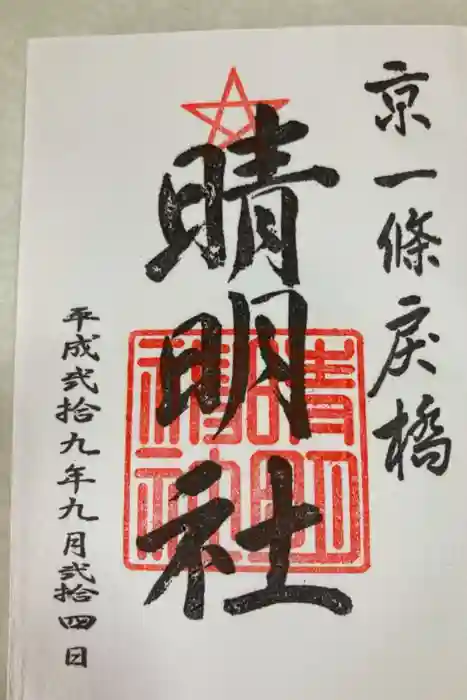 京一條戻橋
晴明社
晴明神社
平成弐拾九年九月弐拾四日